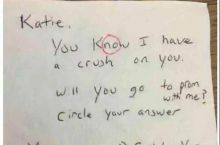 Katie.
You Know I have
a crush on you.
will you go to prom
with me?
Circle your answer